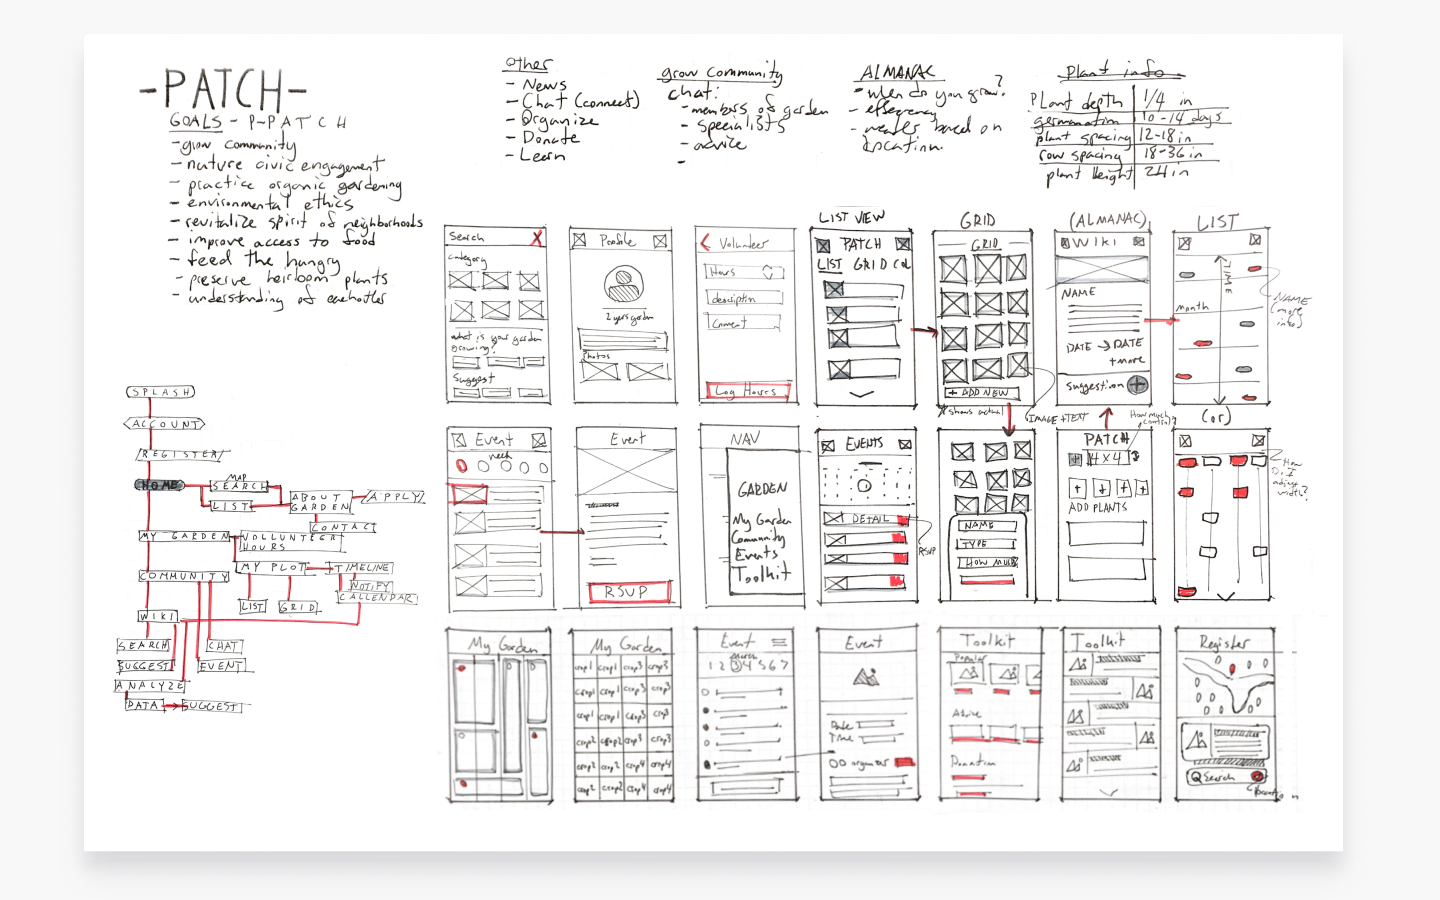 -PATCH-
GOALS - P-PATCH
- grow community
- nuture civic engagement
- practice organic gardening
- environmental ethics
- revitalize spirit of neighborhoods
- improve access to food
- feed the hungry
- preserve heirloom plants
- understanding of eachother
Other
- News
- Chat (connect)
- Organize
- Donate
- Learn
grow community
chat:
- members of garden
- specialists
- advice
-
ALMANAC
- when do you grow?
- effeciency
- based on
location.
Plant info
Plant depth 1/4 in
germanation 10-14 days
plant spacing 12-18 in
row spacing 18-36 in
plant height 24 in
SPLASH
ACCOUNT
REGISTER
HOME
MAP
SEARCH
LIST
ABOUT
GARDEN
APPLY
CONTACT
MY GARDEN
VOLLUNTEER
HOURS
MY PLOT
TIMELINE
NOTIFY
CALLENDAR
COMMUNITY
LIST
GRID
WIKI
SEARCH
CHAT
SUGGEST
EVENT
ANALYZE
DATA
SUGGEST
Search X
category
what is your garden
growing?
Suggest
Profile
2 yrs garden
Photos
Volunteer
Hours
description
Comment
Log Hours
LIST VIEW
PATCH
LIST GRID CAL
GRID
GRID
+ ADD NEW
* shows actual
IMAGE + TEXT
(ALMANAC)
WIKI
NAME
DATE → DATE
+ more
Suggestion +
LIST
TIME
month
NAME
(more
info)
(or)
Event
week
Event
RSVP
NAV
GARDEN
My Garden
Community
Events
Toolkit
EVENTS
DETAIL
RSVP
NAME
TYPE
HOW MUCH
How much
control?
PATCH
4 x 4
ADD PLANTS
How
Do I
adjust
width?
My Garden
My Garden
crop1 crop3 crop3 crop3
crop1 crop3 crop3 crop3
crop1 crop3 crop3 crop3
crop2 crop2 crop3 crop3
crop2 crop2 crop4 crop4
crop2 crop2 crop4 crop4
Event
March
1 2 3 4 5 6 7
Event
Date
Time
organizer
Toolkit
Popular
Advice
Donation
Toolkit
Register
Search
location